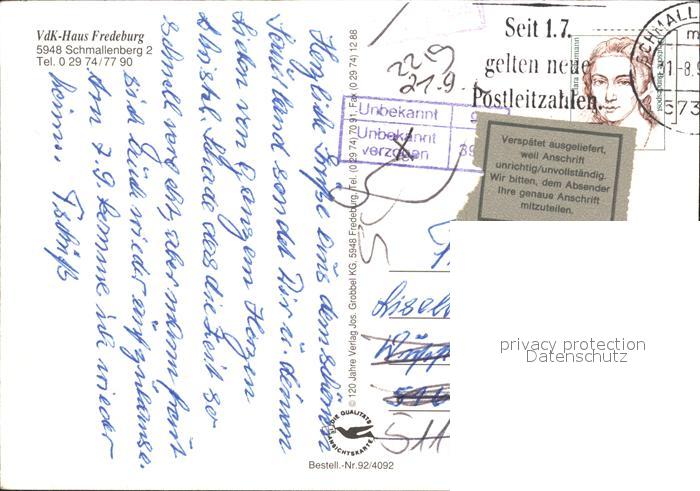 VdK-Haus Fredeburg
5948 Schmallenberg 2
Tel. 0 29 74/77 90
Herzliche Grüße aus dem schönen
Sauerland sendet Dir u. deinen
Lieben von ganzem Herzen
Christel. Schade das die Zeit so
schnell vergeht, aber man freut
sich auch wieder auf Zuhause.
Am 7.9. komme ich wieder
heim. Tschüß
© 120 Jahre Verlag Jos. Grobbel KG, 5948 Fredeburg, Tel. (0 29 74) 70 91, Fax (0 29 74) 12 88
DIE QUALITÄTS
ANSICHTSKARTE
Bestell.-Nr.92/4092
2219
21.9.
Seit 1.7.
gelten neue
Postleitzahlen.
SCHMALL
573
Clara Schumann
Deutsche Bundespost
Unbekannt
Unbekannt
verzogen
39
Verspätet ausgeliefert,
weil Anschrift
unrichtig/unvollständig.
Wir bitten, dem Absender
Ihre genaue Anschrift
mitzuteilen.
Lisel
511
privacy protection
Datenschutz